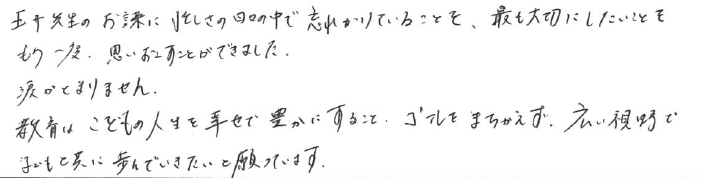 玉井先生のお話に忙しさの日々の中で忘れかけていることを、最も大切にしたいことを
もう一度、思いおこすことができました。
涙がとまりません。
教育はこどもの人生を幸せで豊かにすること、ゴールをまちがえず、広い視野で
子どもと共に歩んでいきたいと願っています。